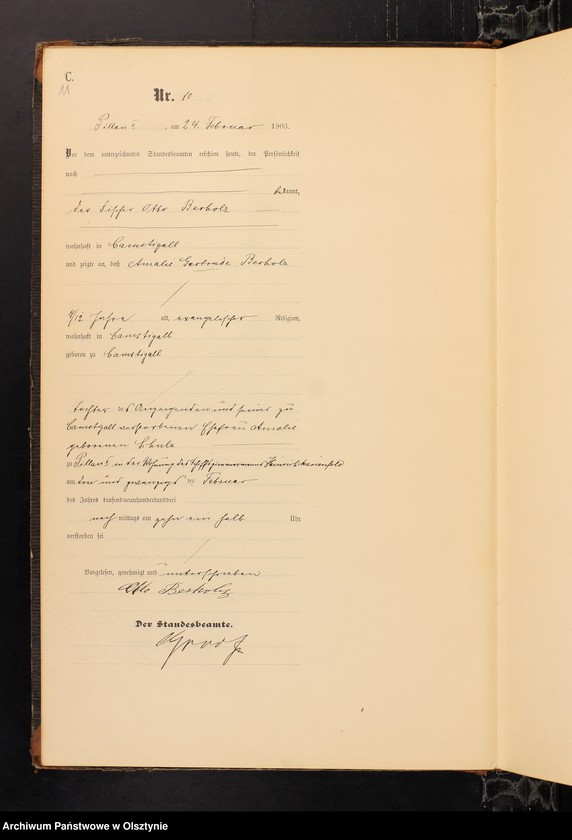 C.
11
Nr. 10
Pillau I, am 24. Februar 1903.
Vor dem unterzeichneten Standesbeamten erschien heute, der Persönlichkeit
nach
bekannt,
der Fischer Otto Berholz
wohnhaft in Camstigall
und zeigte an, daß Amalie Gertrude Berholz
4/12 Jahre alt, evangelischer Religion,
wohnhaft in Camstigall
geboren zu Camstigall
Tochter des Anzeigenden und seiner zu
Camstigall verstorbenen Ehefrau Amalie
geborenen
zu Pillau I in der Wohnung des
am drei und zwanzigsten Februar
des Jahres tausendneunhundertunddrei
nachmittags um zehn ein halb Uhr
verstorben sei
Vorgelesen, genehmigt und unterschrieben
Otto Berholz
Der Standesbeamte.
Archiwum Państwowe w Olsztynie